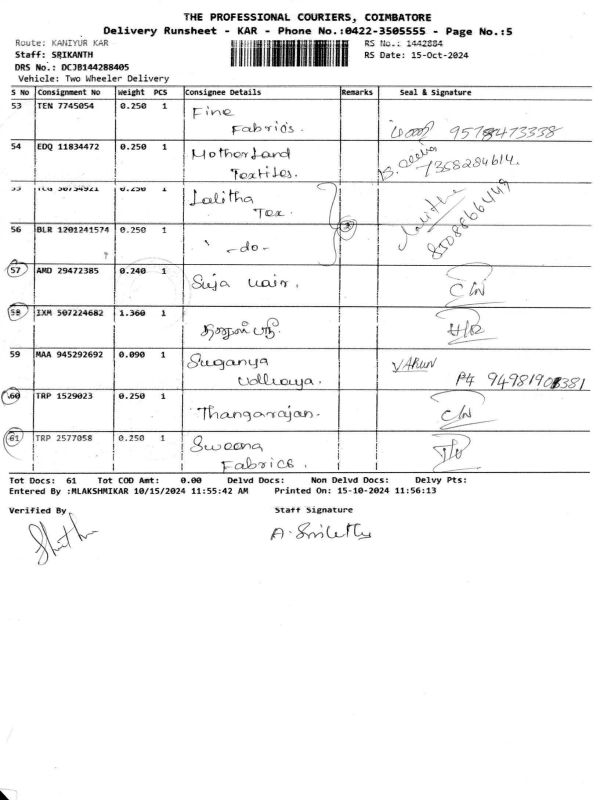 THE PROFESSIONAL COURIERS, COIMBATORE
Delivery Runsheet - KAR - Phone No.:0422-3505555 - Page No.:5
Route: KANIYUR KAR RS No.: 1442884
Staff: SRIKANTH RS Date: 15-Oct-2024
DRS No.: DCJB144288405
Vehicle: Two Wheeler Delivery
S No Consignment No Weight PCS Consignee Details Remarks Seal & Signature
53 TEN 7745054 0.250 1 Fine
Fabrics. 9578473338
54 EDQ 11834472 0.250 1 Motherland
Textiles. 7358284614.
55 TCG 50754921 0.250 1 Lalitha
Tex. Lalitha 8508866449
56 BLR 1201241574 0.250 1 " -do-
57 AMD 29472385 0.240 1 Suja
58 IXM 507224682 1.360 1
59 MAA 945292692 0.090 1 Suganya VARUN
Udhaya. 94981908381
60 TRP 1529023 0.250 1 Thangarajan.
61 TRP 2577058 0.250 1 Sweena
Fabrics.
Tot Docs: 61 Tot COD Amt: 0.00 Delvd Docs: Non Delvd Docs: Delvy Pts:
Entered By :MLAKSHMIKAR 10/15/2024 11:55:42 AM Printed On: 15-10-2024 11:56:13
Verified By Staff Signature